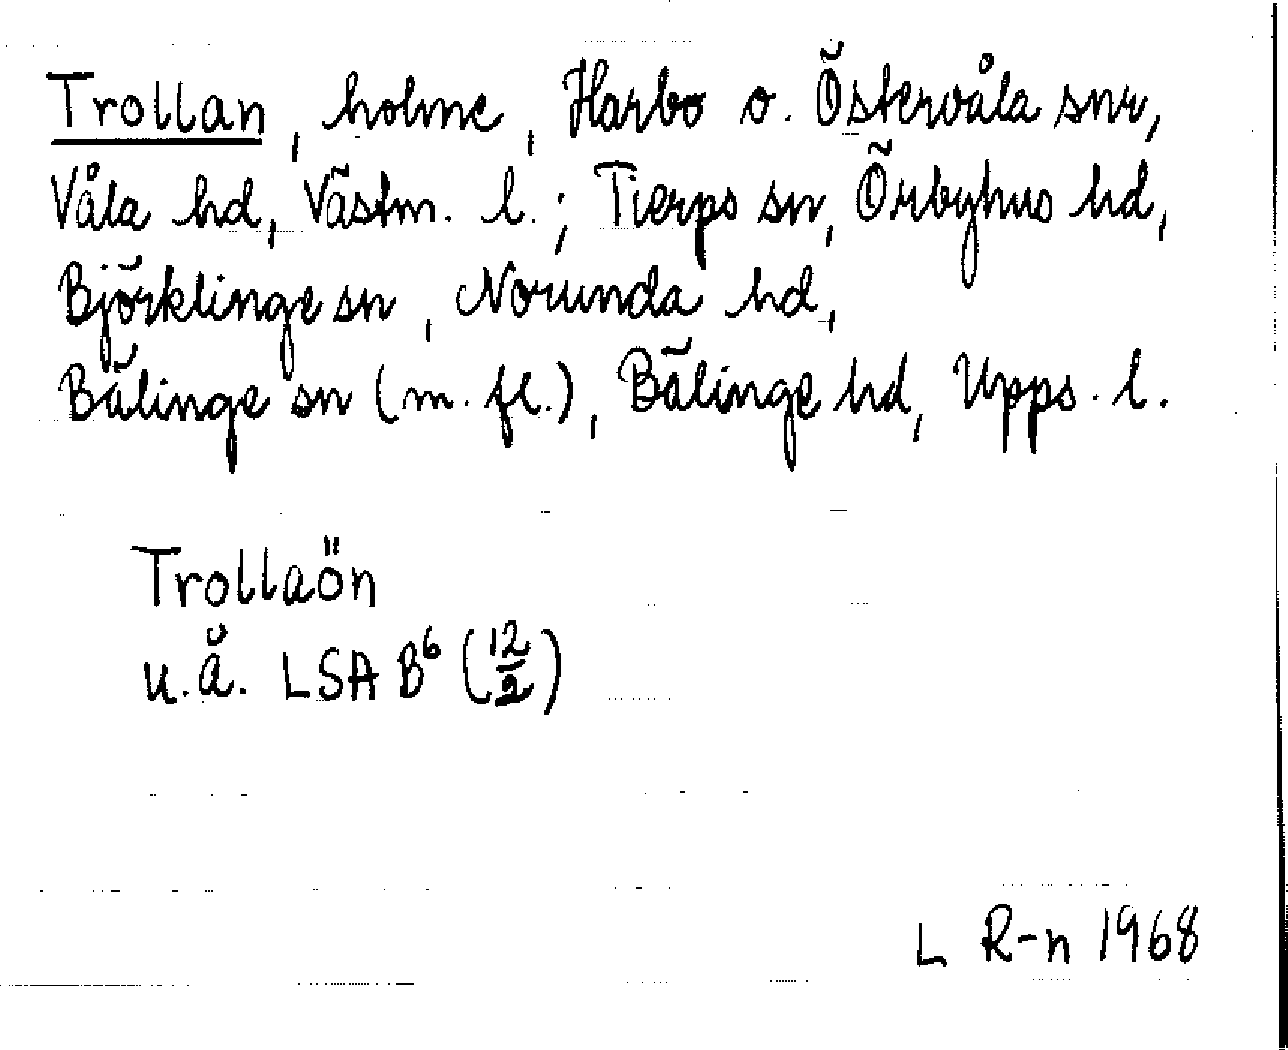 Trollan, holme, Harbo o. Östervåla snr,
Våla hd, Västm. l.; Tierps sn, Örbyhus hd,
Björklinge sn, Norunda hd,
Bälinge sn (m. fl.), Bälinge hd, Upps. l.
Trollaön
u.å. LSA B⁶ (12/2)
L R-n 1968